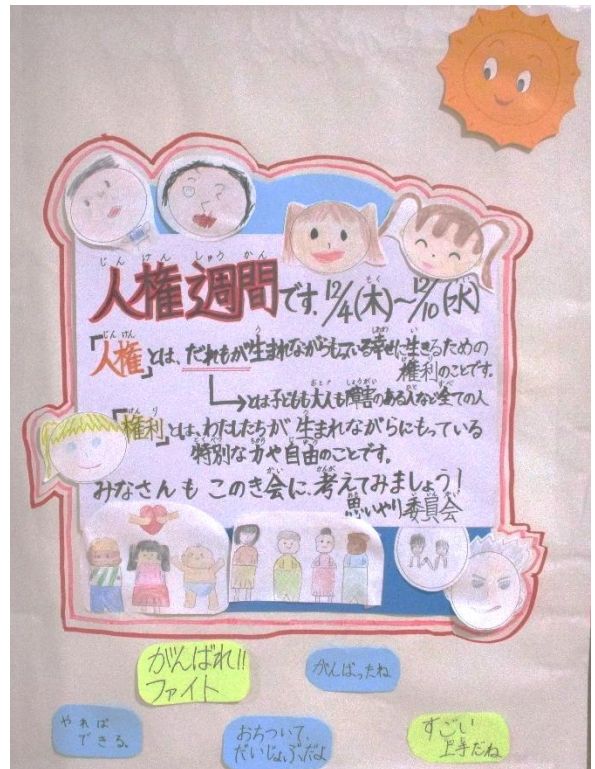 じんけんしゅうかん
人権週間です。12/4(木)〜12/10(水)
「人権」とは、だれもが生まれながらもっている幸せに生きるための
権利のことです。
→とは子どもも大人も障害のある人など全ての人
「権利」とは、わたしたちが生まれながらにもっている
特別な力や自由のことです。
みなさんもこのき会に、考えてみましょう!
思いやり委員会
がんばれ!!
ファイト
がんばったね
やれば
できる。
おちついて、
だいじょぶだよ
すごい
上手だね